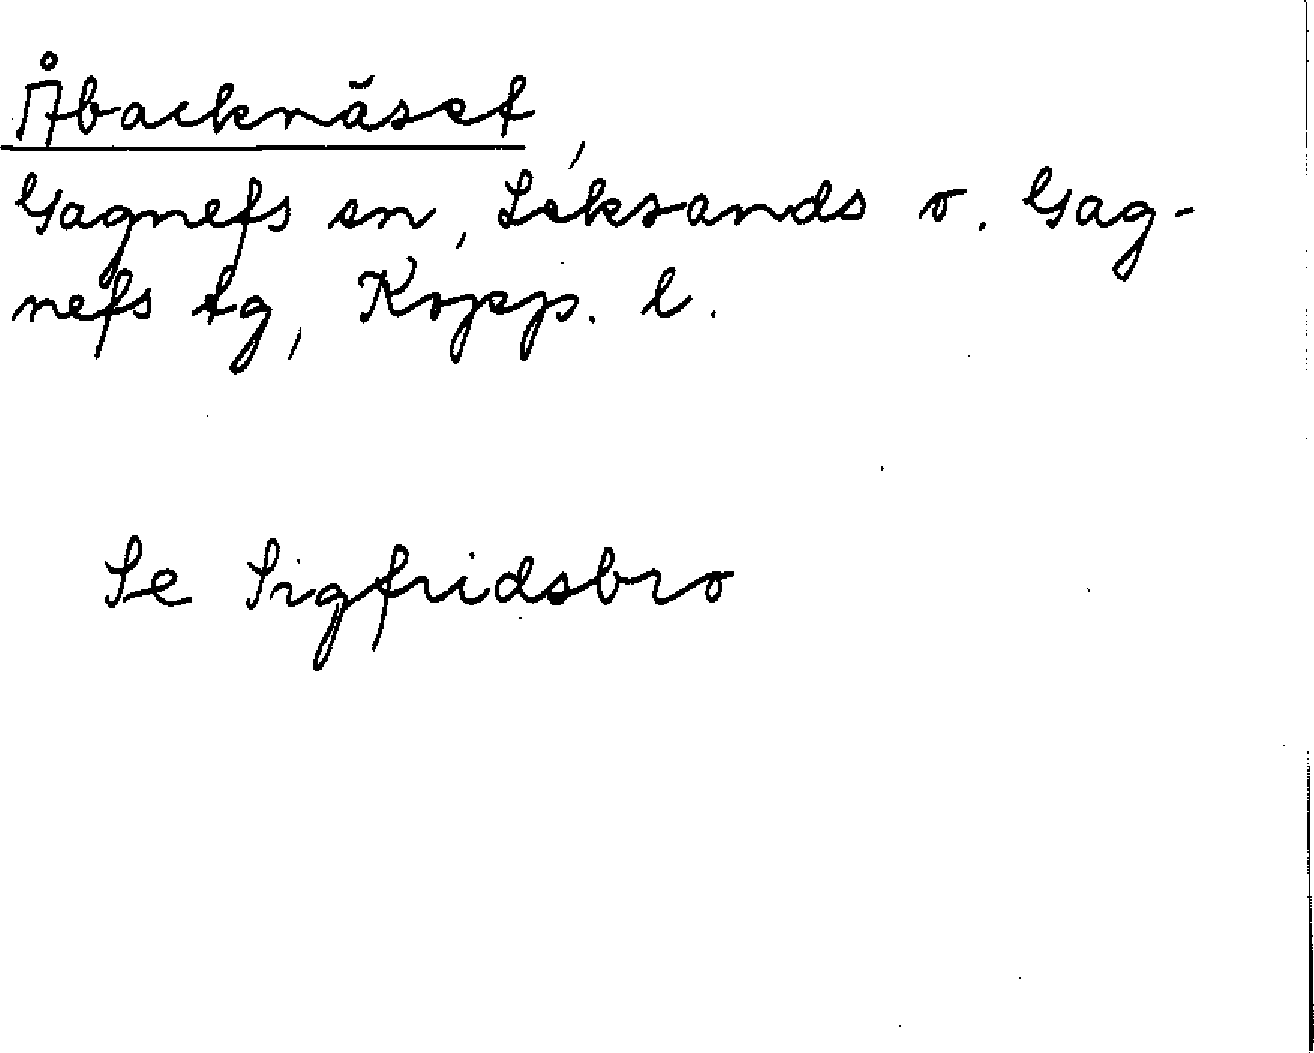 Åbacknäset,
Gagnefs sn, Leksands o. Gag-
nefs tg, Kopp. l.
Se Sigfridsbro